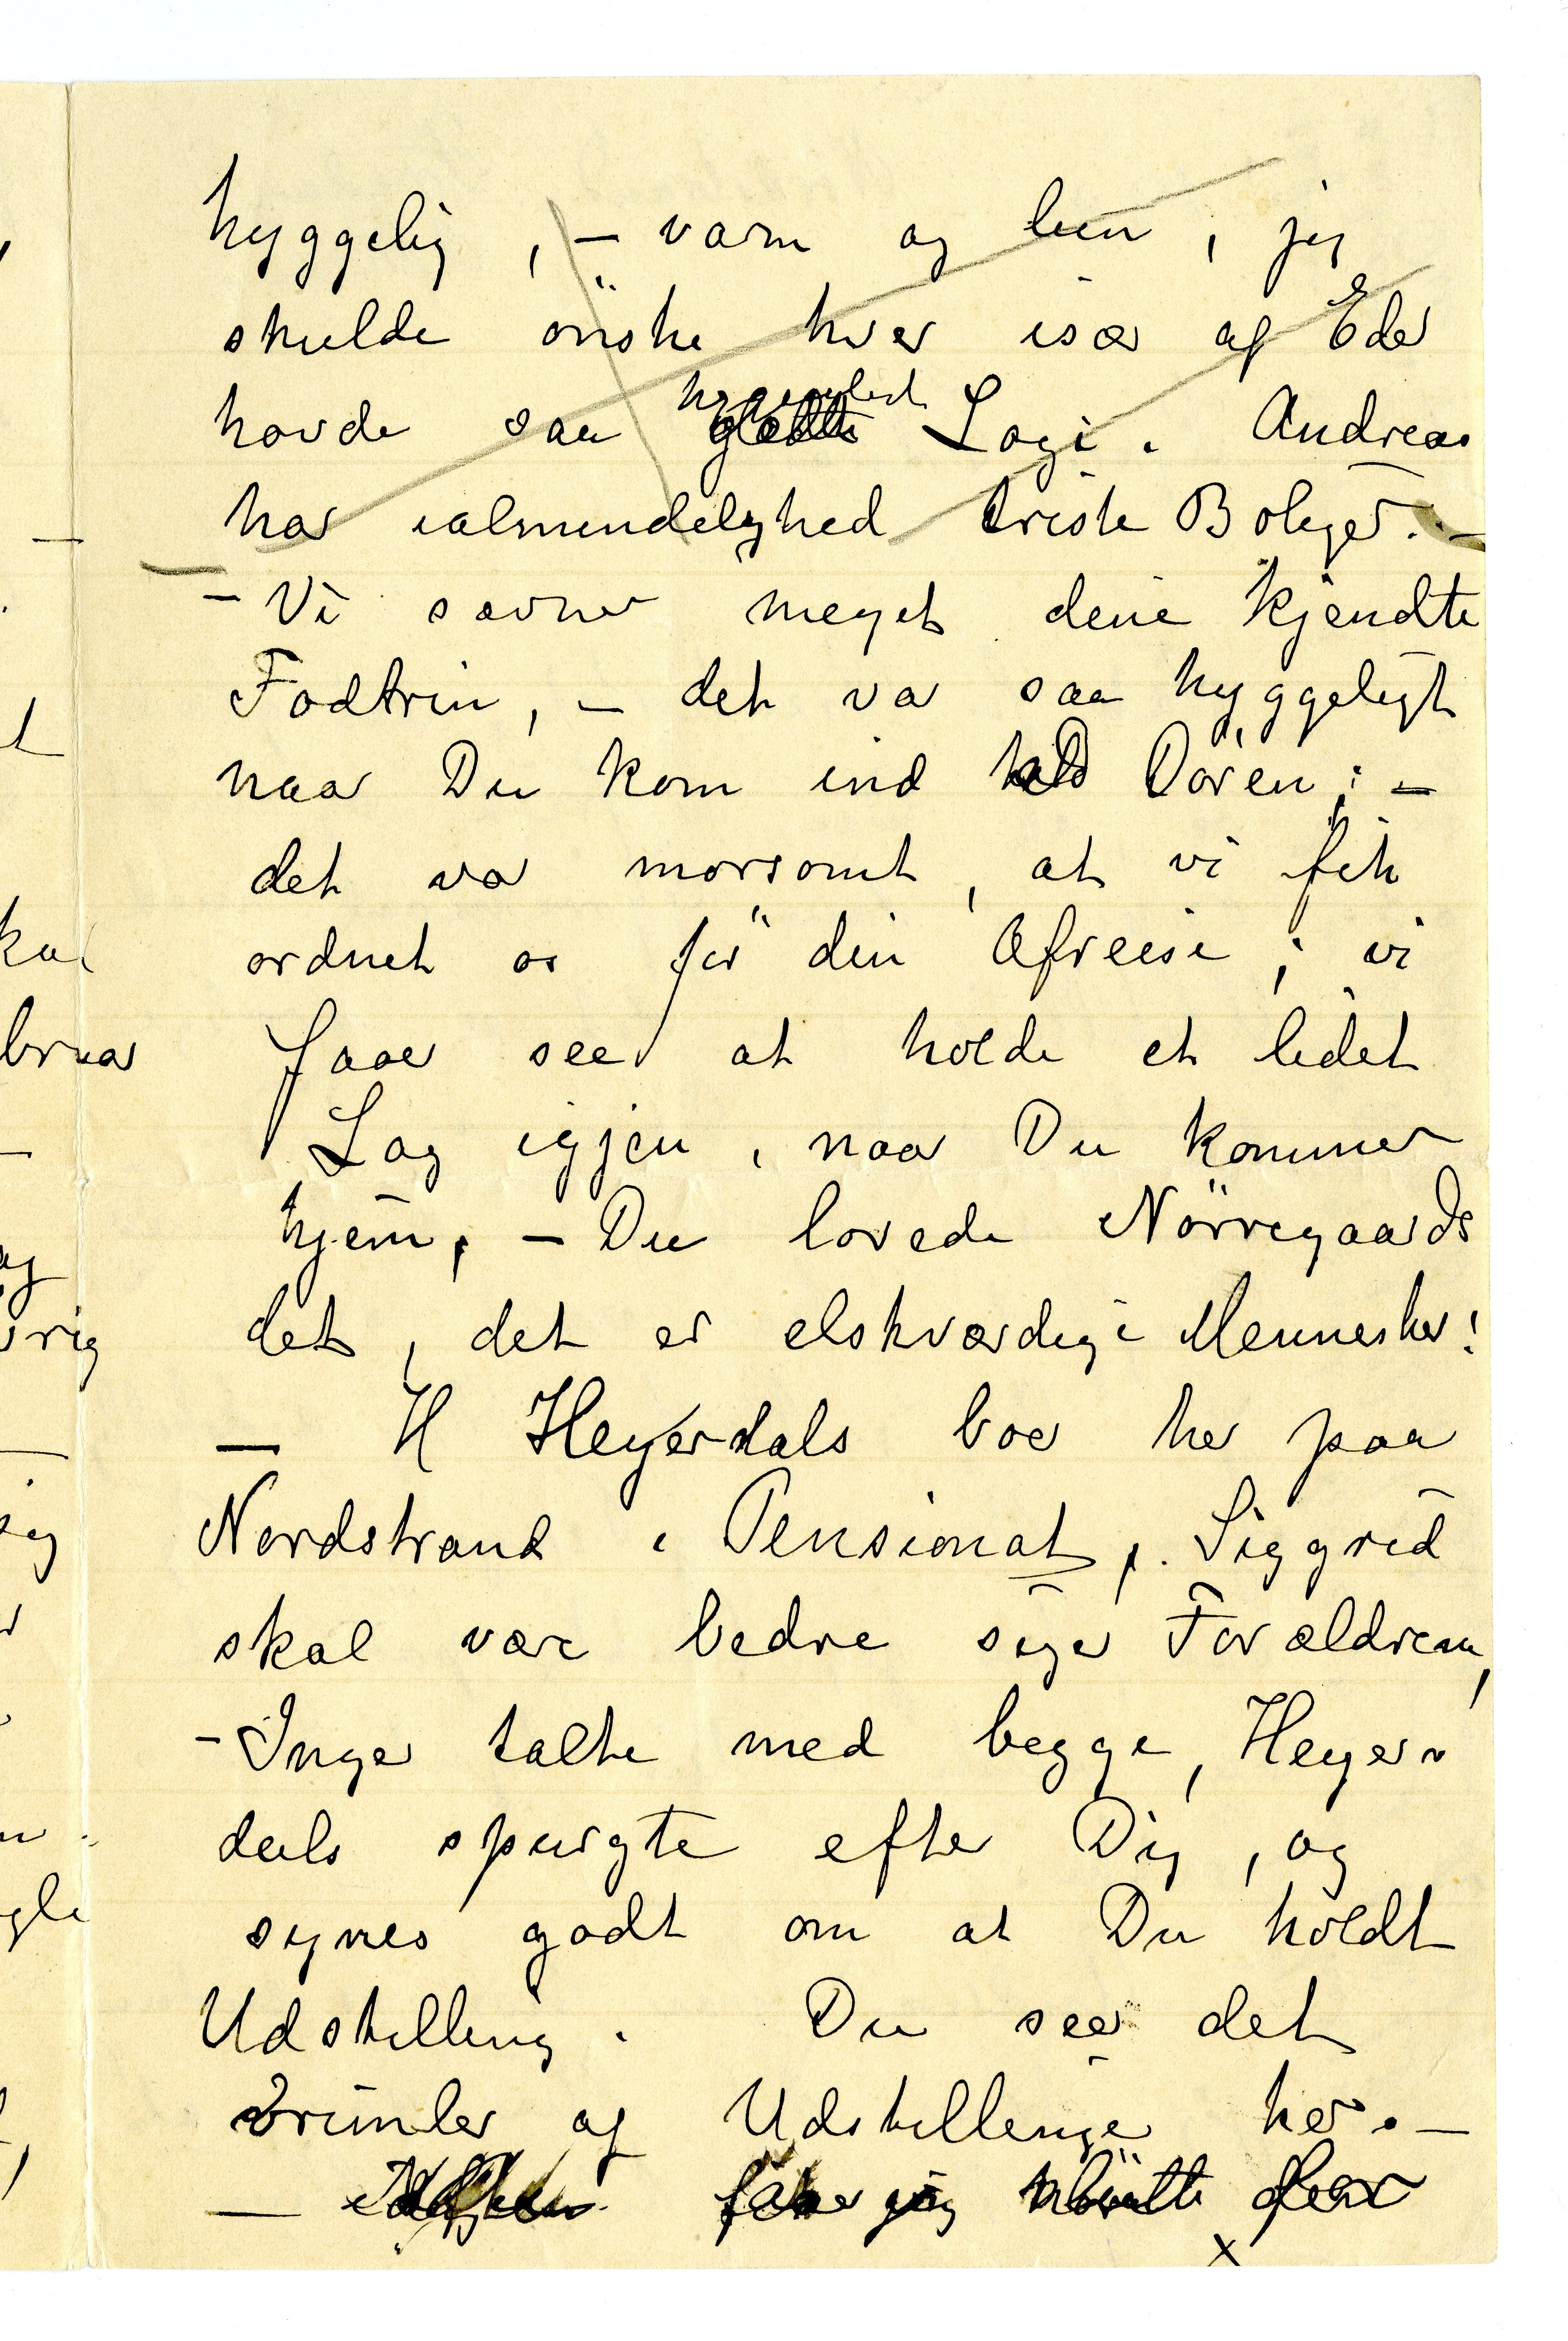 hyggelig, – varm og lun, jeg
skulde önske hver især af Eder
havde saa hyggeligt Logi. Andreas
har ialmindelighed triste Boliger. –
– Vi savner meget dine kjendte
Fodtrin, – det var saa hyggeligt
naar Du kom ind Dören; –
det var morsomt, at vi fik
ordnet os för din Afreise; vi
faaer see at holde et lidet
Lag igjen, naar Du kommer
hjem, – Du lovede Nörregaards
det, det er elskværdige Mennesker!
– H Heyerdals boe her paa
Nordstrand i Pensionat, Siggrid
skal være bedre siger Forældrene,
– Inger talte med begge, Heyer
dals spurgte efter Dig, og
synes godt om at Du holdt
Udstilling. Du seer det
vrimler af Udstillinger her. –